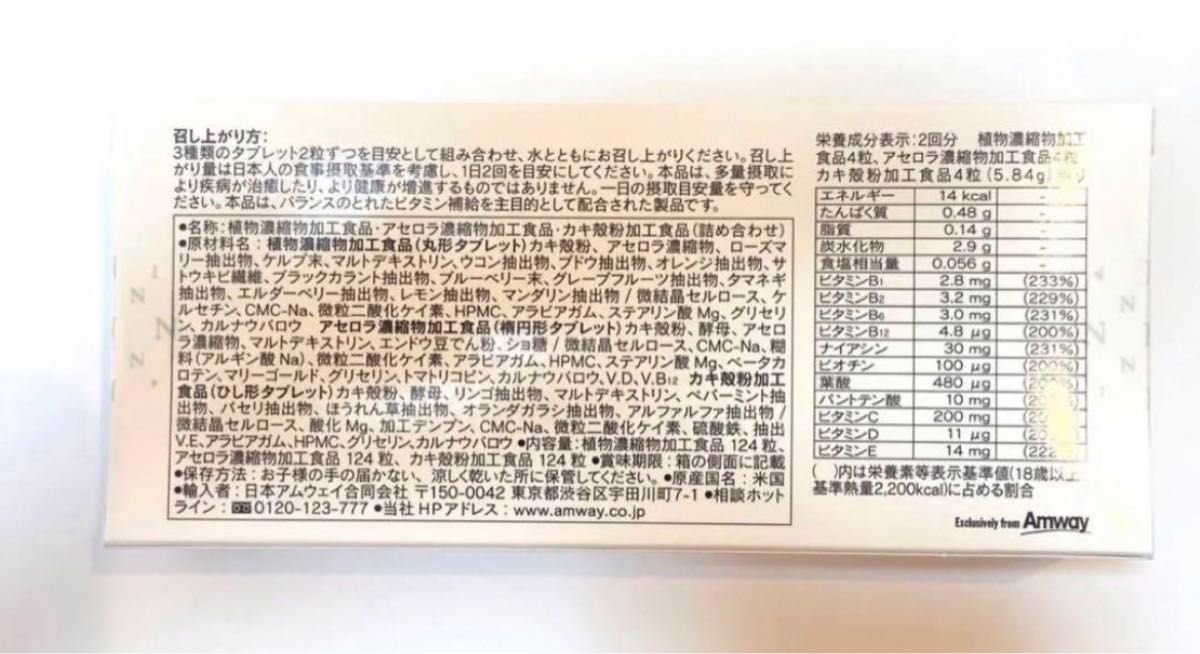 召し上がり方:
3種類のタブレット2粒ずつを目安として組み合わせ、水とともにお召し上がりください。召し上
がり量は日本人の食事摂取基準を考慮し、1日2回を目安にしてください。本品は、多量摂取に
より疾病が治癒したり、より健康が増進するものではありません。一日の摂取目安量を守ってく
ださい。本品は、バランスのとれたビタミン補給を主目的として配合された製品です。
●名称:植物濃縮物加工食品・アセロラ濃縮物加工食品・カキ殻粉加工食品(詰め合わせ)
●原材料名:植物濃縮物加工食品(丸形タブレット)カキ殻粉、アセロラ濃縮物、ローズマ
リー抽出物、ケルプ末、マルトデキストリン、ウコン抽出物、ブドウ抽出物、オレンジ抽出物、サ
トウキビ繊維、ブラックカラント抽出物、ブルーベリー末、グレープフルーツ抽出物、タマネギ
抽出物、エルダーベリー抽出物、レモン抽出物、マンダリン抽出物/微結晶セルロース、ケ
ルセチン、CMC-Na、微粒二酸化ケイ素、HPMC、アラビアガム、ステアリン酸Mg、グリセリ
ン、カルナウバロウ アセロラ濃縮物加工食品(楕円形タブレット)カキ殻粉、酵母、アセロ
ラ濃縮物、マルトデキストリン、エンドウ豆でん粉、ショ糖/微結晶セルロース、CMC-Na、糊
料(アルギン酸Na)、微粒二酸化ケイ素、アラビアガム、HPMC、ステアリン酸Mg、ベータカ
ロテン、マリーゴールド、グリセリン、トマトリコピン、カルナウバロウ、V.D、V.B12 カキ殻粉加工
食品(ひし形タブレット)カキ殻粉、酵母、リンゴ抽出物、マルトデキストリン、ペパーミント抽
出物、パセリ抽出物、ほうれん草抽出物、オランダガラシ抽出物、アルファルファ抽出物/
微結晶セルロース、酸化Mg、加工デンプン、CMC-Na、微粒二酸化ケイ素、硫酸鉄、抽出
V.E、アラビアガム、HPMC、グリセリン、カルナウバロウ ●内容量:植物濃縮物加工食品124粒、
アセロラ濃縮物加工食品124粒、カキ殻粉加工食品124粒 ●賞味期限:箱の側面に記載
●保存方法:お子様の手の届かない、涼しく乾いた所に保管してください。●原産国名:米国
●輸入者:日本アムウェイ合同会社 〒150-0042 東京都渋谷区宇田川町7-1 ●相談ホット
ライン:0120-123-777 ●当社HPアドレス:www.amway.co.jp
栄養成分表示:2回分 植物濃縮物加工
食品4粒、アセロラ濃縮物加工食品4粒
カキ殻粉加工食品4粒(5.84g)
エネルギー 14 kcal -
たんぱく質 0.48 g -
脂質 0.14 g -
炭水化物 2.9 g -
食塩相当量 0.056 g -
ビタミンB1 2.8 mg (233%)
ビタミンB2 3.2 mg (229%)
ビタミンB6 3.0 mg (231%)
ビタミンB12 4.8 μg (200%)
ナイアシン 30 mg (231%)
ビオチン 100 μg (200%)
葉酸 480 μg
パントテン酸 10 mg
ビタミンC 200 mg
ビタミンD 11 μg
ビタミンE 14 mg
( )内は栄養素等表示基準値(18歳以上
基準熱量2,200kcal)に占める割合
Exclusively from Amway